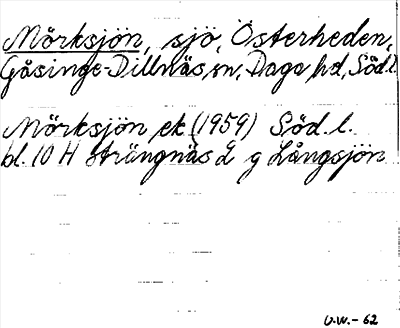 Mörksjön, sjö, Österheden,
Gåsinge-Dillnäs, sn, Daga hd, Söd. l.
Mörksjön ek (1959) Söd. l.
bl. 10 H Strängnäs d g Långsjön
U.W. - 62